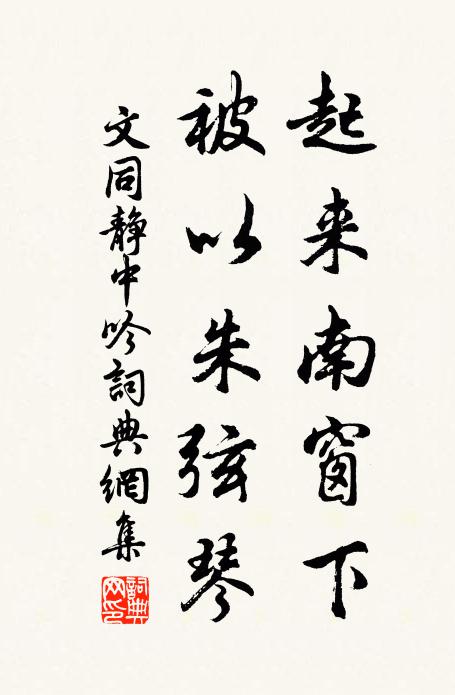 起来南窗下
被以朱弦琴
文同静中吟詞典網集
詞典網印